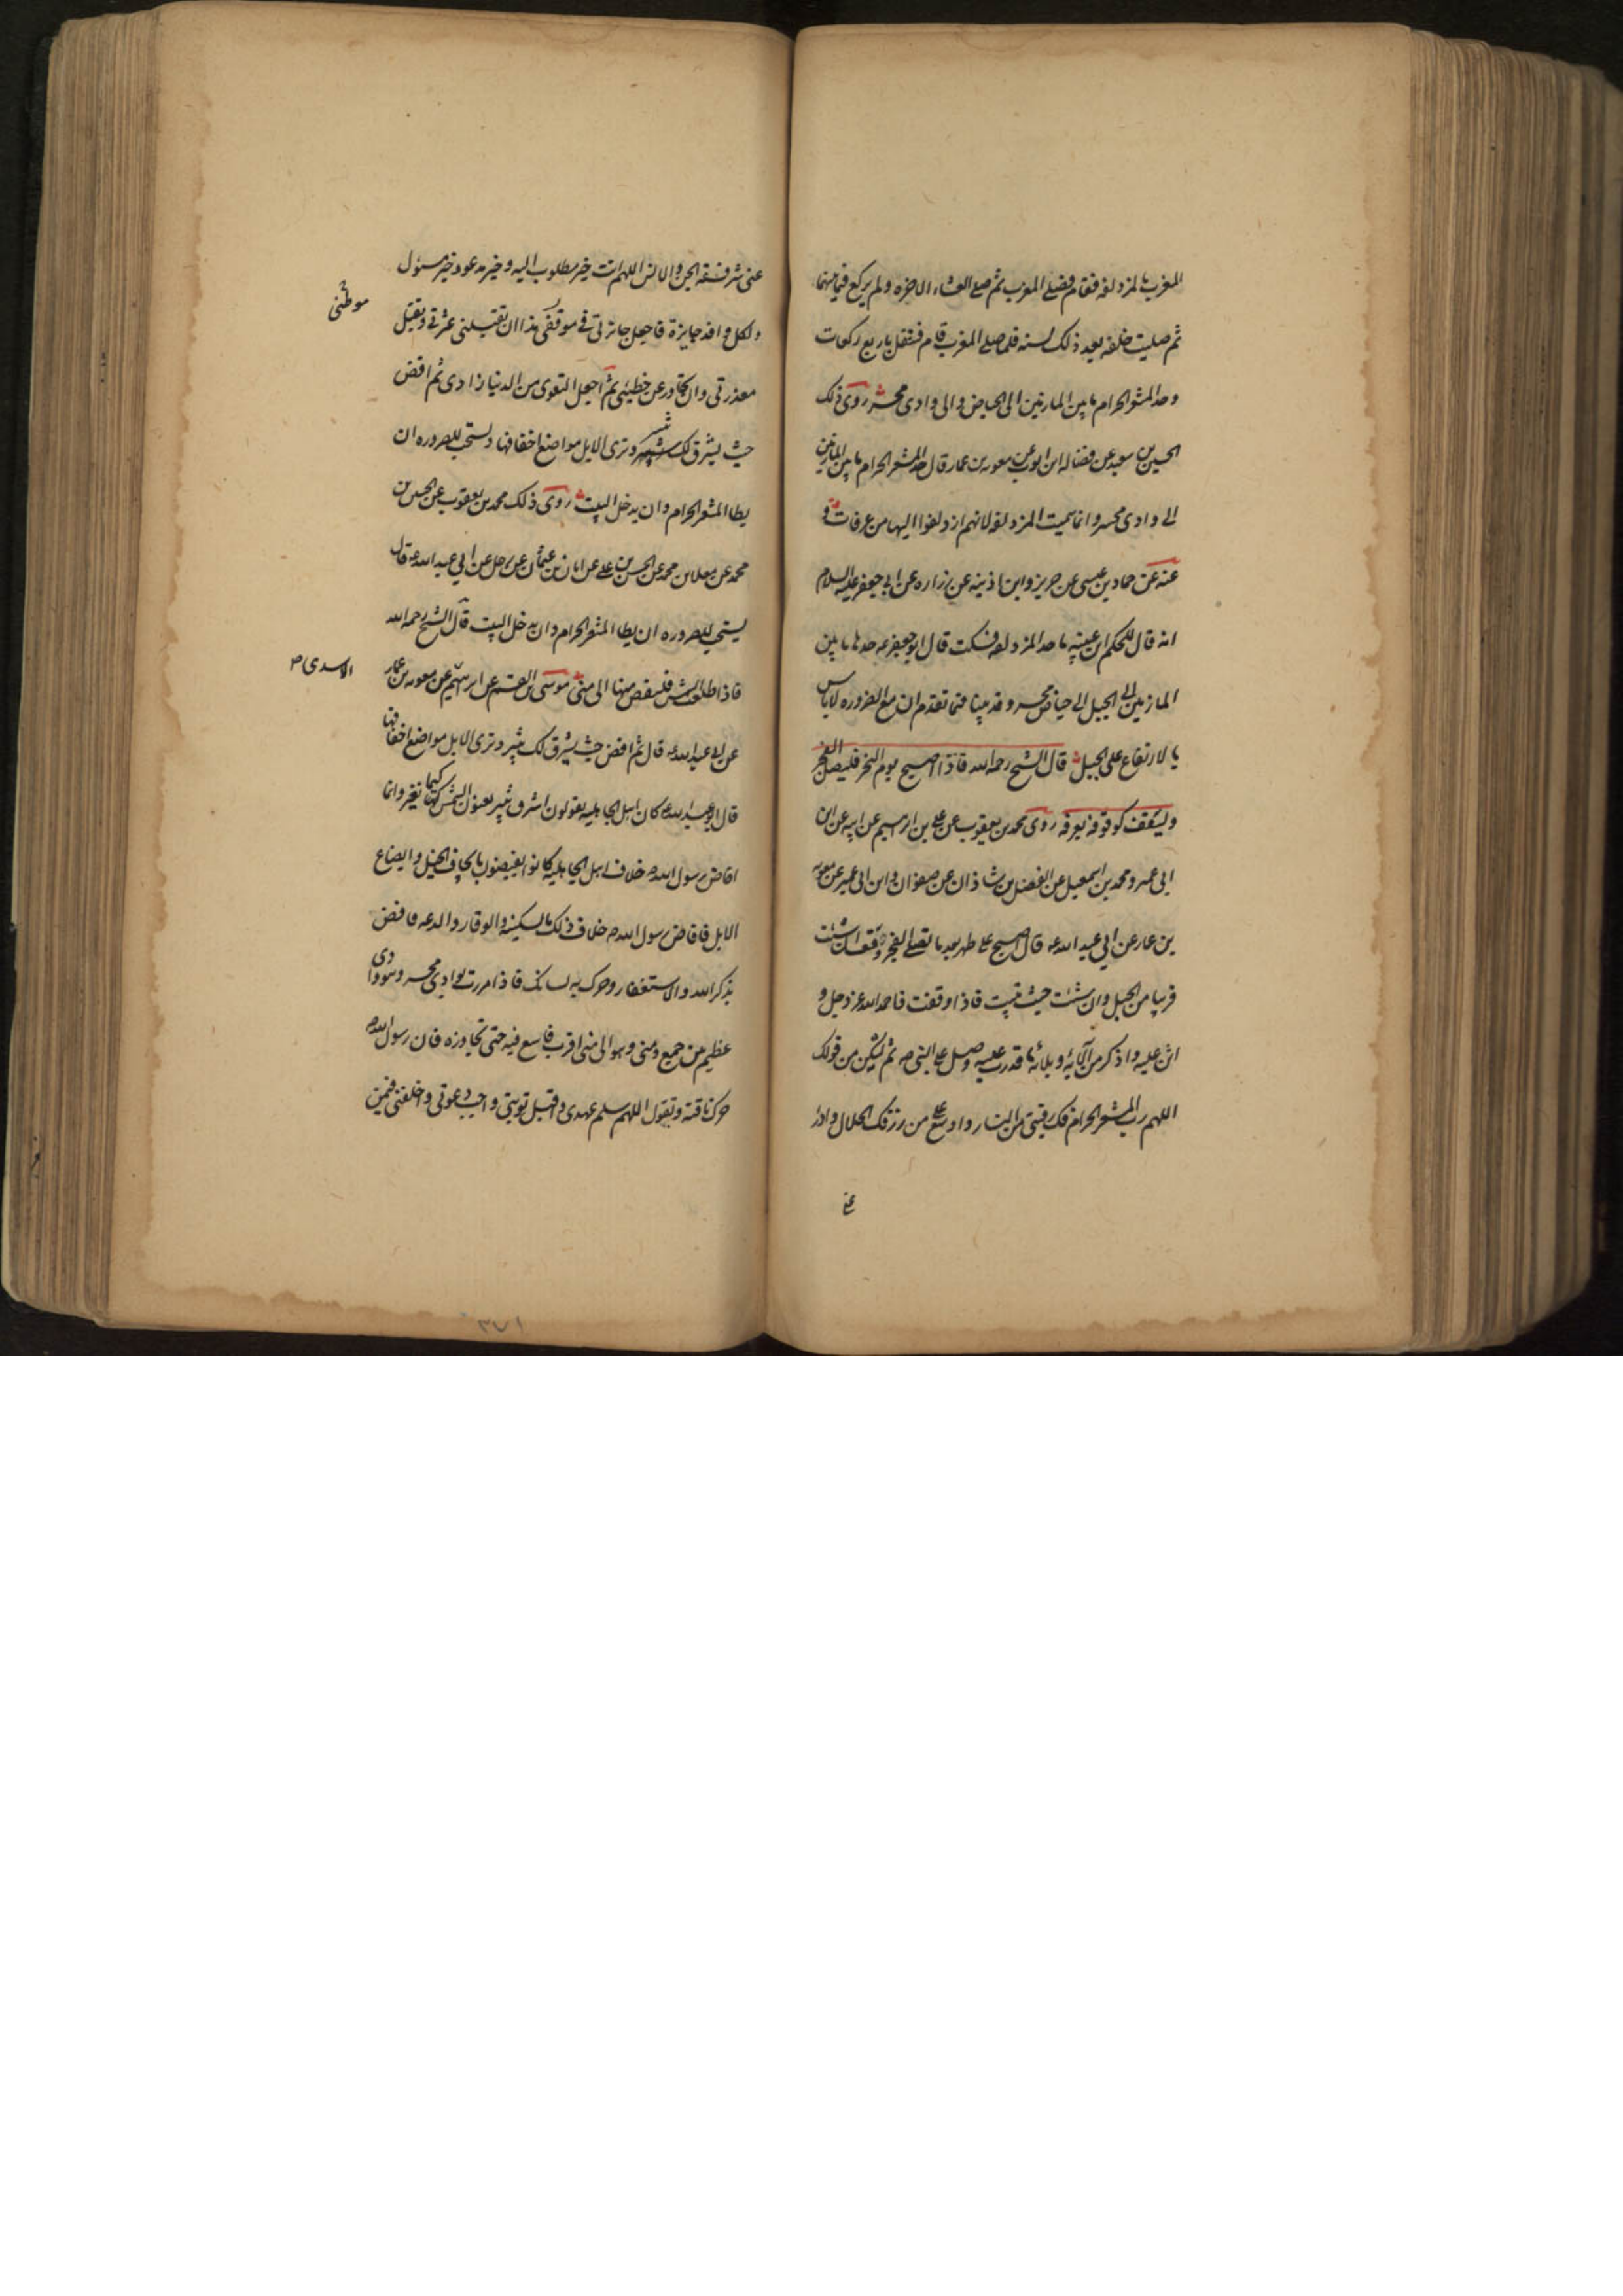 المغرب بالمزدلفه فقام فصلى المغرب ثم صلى العشاء الاخره ولم يركع فيما بينهما
ثم صليت خلفه بعد ذلك بسنه فلما صلى المغرب قام فتنفل باربع ركعات
وحد المشعر الحرام ما بين المازمين الى الحياض والى وادى محسر روى ذلك
الحسين بن سعيد عن فضاله ابن ايوب عن معويه بن عمار قال حد المشعر الحرام ما بين المازمين
الى وادى محسر وانما سميت المزدلفه لانهم ازدلفوا اليها من عرفات و
عنه عن حماد بن عيسى عن حريز وابن اذينه عن زراره عن ابى جعفر عليه السلام
انه قال للحكم ابن عيينه ما حد المزدلفه فسكت قال ابو جعفر ع حدها ما بين
المازمين الى الجبل الى حياض محسر وقد بينا فيما تقدم ان مع الضروره لا باس
بالارتفاع على الجبل قال الشيخ رحمه الله فاذا اصبح يوم النحر فليصل الفجر
وليقف كوقوفه بعرفه روى محمد بن يعقوب عن على بن ابرهيم عن ابيه عن ابن
ابى عمير ومحمد بن اسمعيل عن الفضل بن شاذان عن صفوان وابن ابى عمير عن معويه
بن عمار عن ابى عبد الله ع قال اصبح على طهر بعد ما تصلى الفجر وقف ان شئت
قريبا من الجبل وان شئت حيث تبيت فاذا وقفت فاحمد الله عز وجل و
اثن عليه واذكر من آلائه وبلائه ما قدرت عليه وصل على النبى ص ثم ليكن من قولك
اللهم رب المشعر الحرام فك رقبتى من النار واوسع على من رزقك الحلال وادرء
عنى
عنى شر فسقه الجن والانس اللهم انت خير مطلوب اليه وخير مدعو وخير مسئول
ولكل وافد جايزة فاجعل جائزتى فى موقفى هذا ان تقيلنى عثرتى وتقبل
موطنى
معذرتى وان تجاوز عن خطيئتى ثم اجعل التقوى من الدنيا زادى ثم افض
حيث يشرق لك ثبير وترى الابل مواضع اخفافها ويستحب للصروره ان
يطا المشعر الحرام وان يدخل البيت روى ذلك محمد بن يعقوب عن الحسين بن
محمد عن معلا بن محمد عن الحسن بن على عن ابان بن عثمان عن رجل عن ابى عبد الله ع قال
يستحب للصروره ان يطا المشعر الحرام وان يدخل البيت قال الشيخ رحمه الله
فاذا طلعت الشمس فليفض منها الى منى موسى بن القسم عن ابرهيم عن معويه بن عمار
الاسدى ص
عن ابى عبد الله ع قال ثم افض حيث يشرق لك ثبير وترى الابل مواضع اخفافها
قال ابو عبد الله ع كان اهل الجاهليه يقولون اشرق ثبير يعنون الشمس كيما نغير وانما
افاض رسول الله ص خلاف اهل الجاهليه كانوا يفيضون بايجاف الخيل وايضاع
الابل فافاض رسول الله ص خلاف ذلك بالسكينه والوقار والدعه فافض
بذكر الله والاستغفار وحرك به لسانك فاذا مررت بوادى محسر وهو وادى
عظيم بين جمع ومنى وهو الى منى اقرب فاسع فيه حتى تجاوزه فان رسول الله ص
حرك ناقته وتقول اللهم سلم عهدى واقبل توبتى واجب دعوتى واخلفنى فيمن
٣٧١